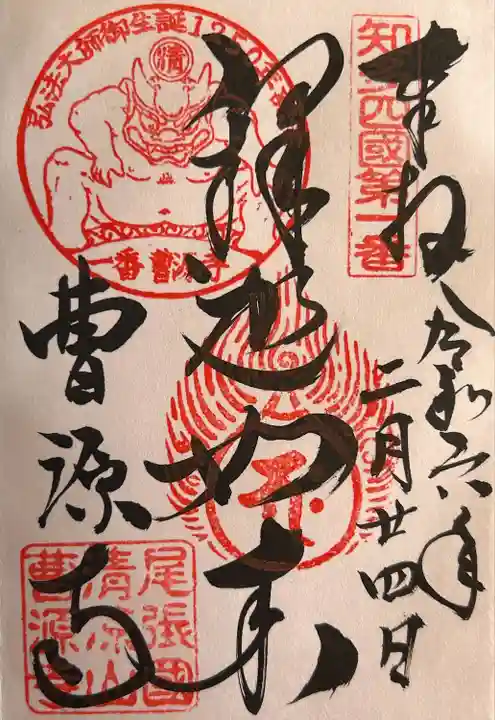 奉拝
令和六年
二月廿四日
知多四國第一番
釋迦如来
弘法大師御生誕1250年記念
清
一番 曹源寺
曹源寺
尾張國
清涼山
曹源寺